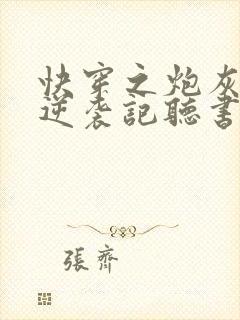 快穿之炮灰
逆袭記聽書
張齊